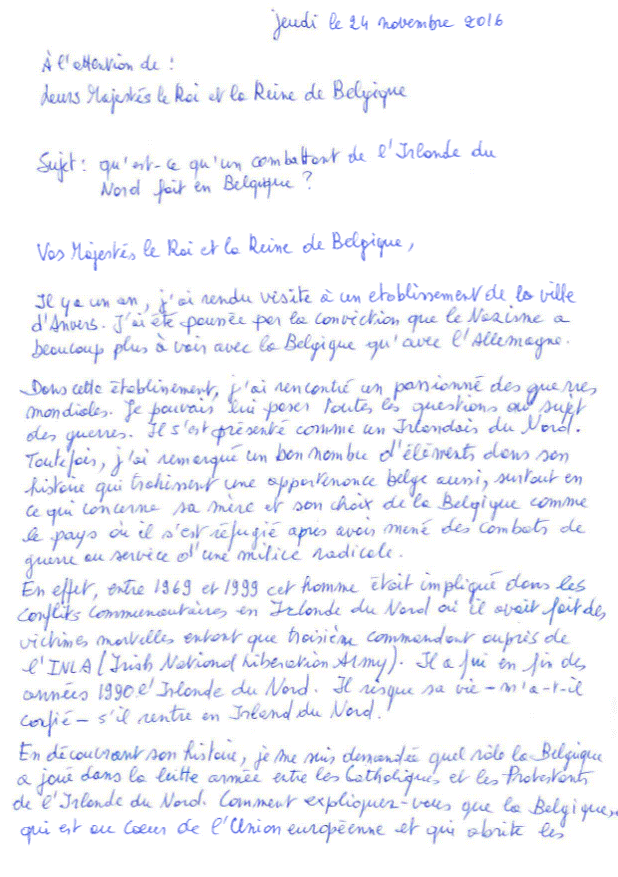 jeudi le 24 novembre 2016
À l'attention de :
Leurs Majestés le Roi et la Reine de Belgique
Sujet : qu'est-ce qu'un combattant de l'Irlande du
Nord fait en Belgique ?
Vos Majestés le Roi et la Reine de Belgique,
Il y a un an, j'ai rendu visite à un etablissement de la ville
d'Anvers. J'ai éte poussée par la conviction que le Nazisme a
beaucoup plus à voir avec la Belgique qu'avec l'Allemagne.
Dans cette établissement, j'ai rencontré un passionné des guerres
mondiales. Je pouvais lui poser toutes les questions au sujet
des guerres. Il s'est présenté comme un Irlandais du Nord.
Toutefois, j'ai remarqué un bon nombre d'éléments dans son
histoire qui trahissent une appartenance belge aussi, surtout en
ce qui concerne sa mère et son choix de la Belgique comme
le pays où il s'est réfugié apres avoir mené des combats de
guerre au service d'une milice radicale.
En effet, entre 1969 et 1999 cet homme était impliqué dans les
conflits communautaires en Irlande du Nord où il avait fait des
victimes mortelles entant que troisième commandant auprès de
l'INLA (Irish National Liberation Army). Il a fui en fin des
années 1990 l'Irlande du Nord. Il risque sa vie – m'a-t-il
confié – s'il rentre en Irland du Nord.
En découvrant son histoire, je me suis demandée quel rôle la Belgique
a joué dans la lutte armée entre les Catholiques et les Protestants
de l'Irlande du Nord. Comment expliquez-vous que la Belgique,
qui est au coeur de l'Union européenne et qui abrite les